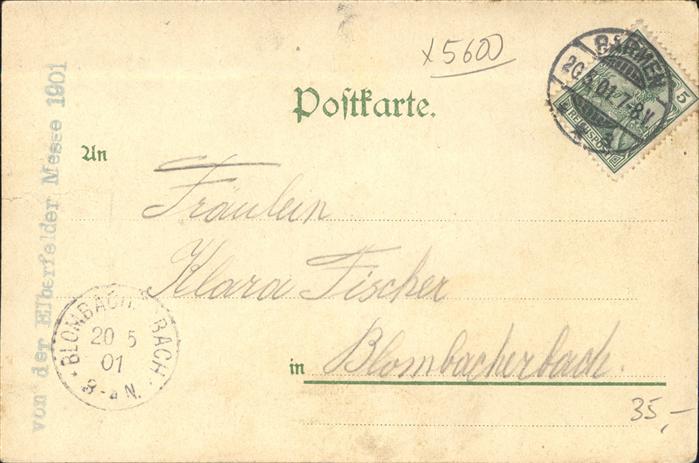 x5600
BARMEN
20.5.01.7-8V.
5
REICHSPOST
Postkarte.
An
Fräulein
Klara Fischer
in Blombacherbach.
35,-
BLOMBACH BACH
20 5
01
8-N.
von der Elberfelder Messe 1901